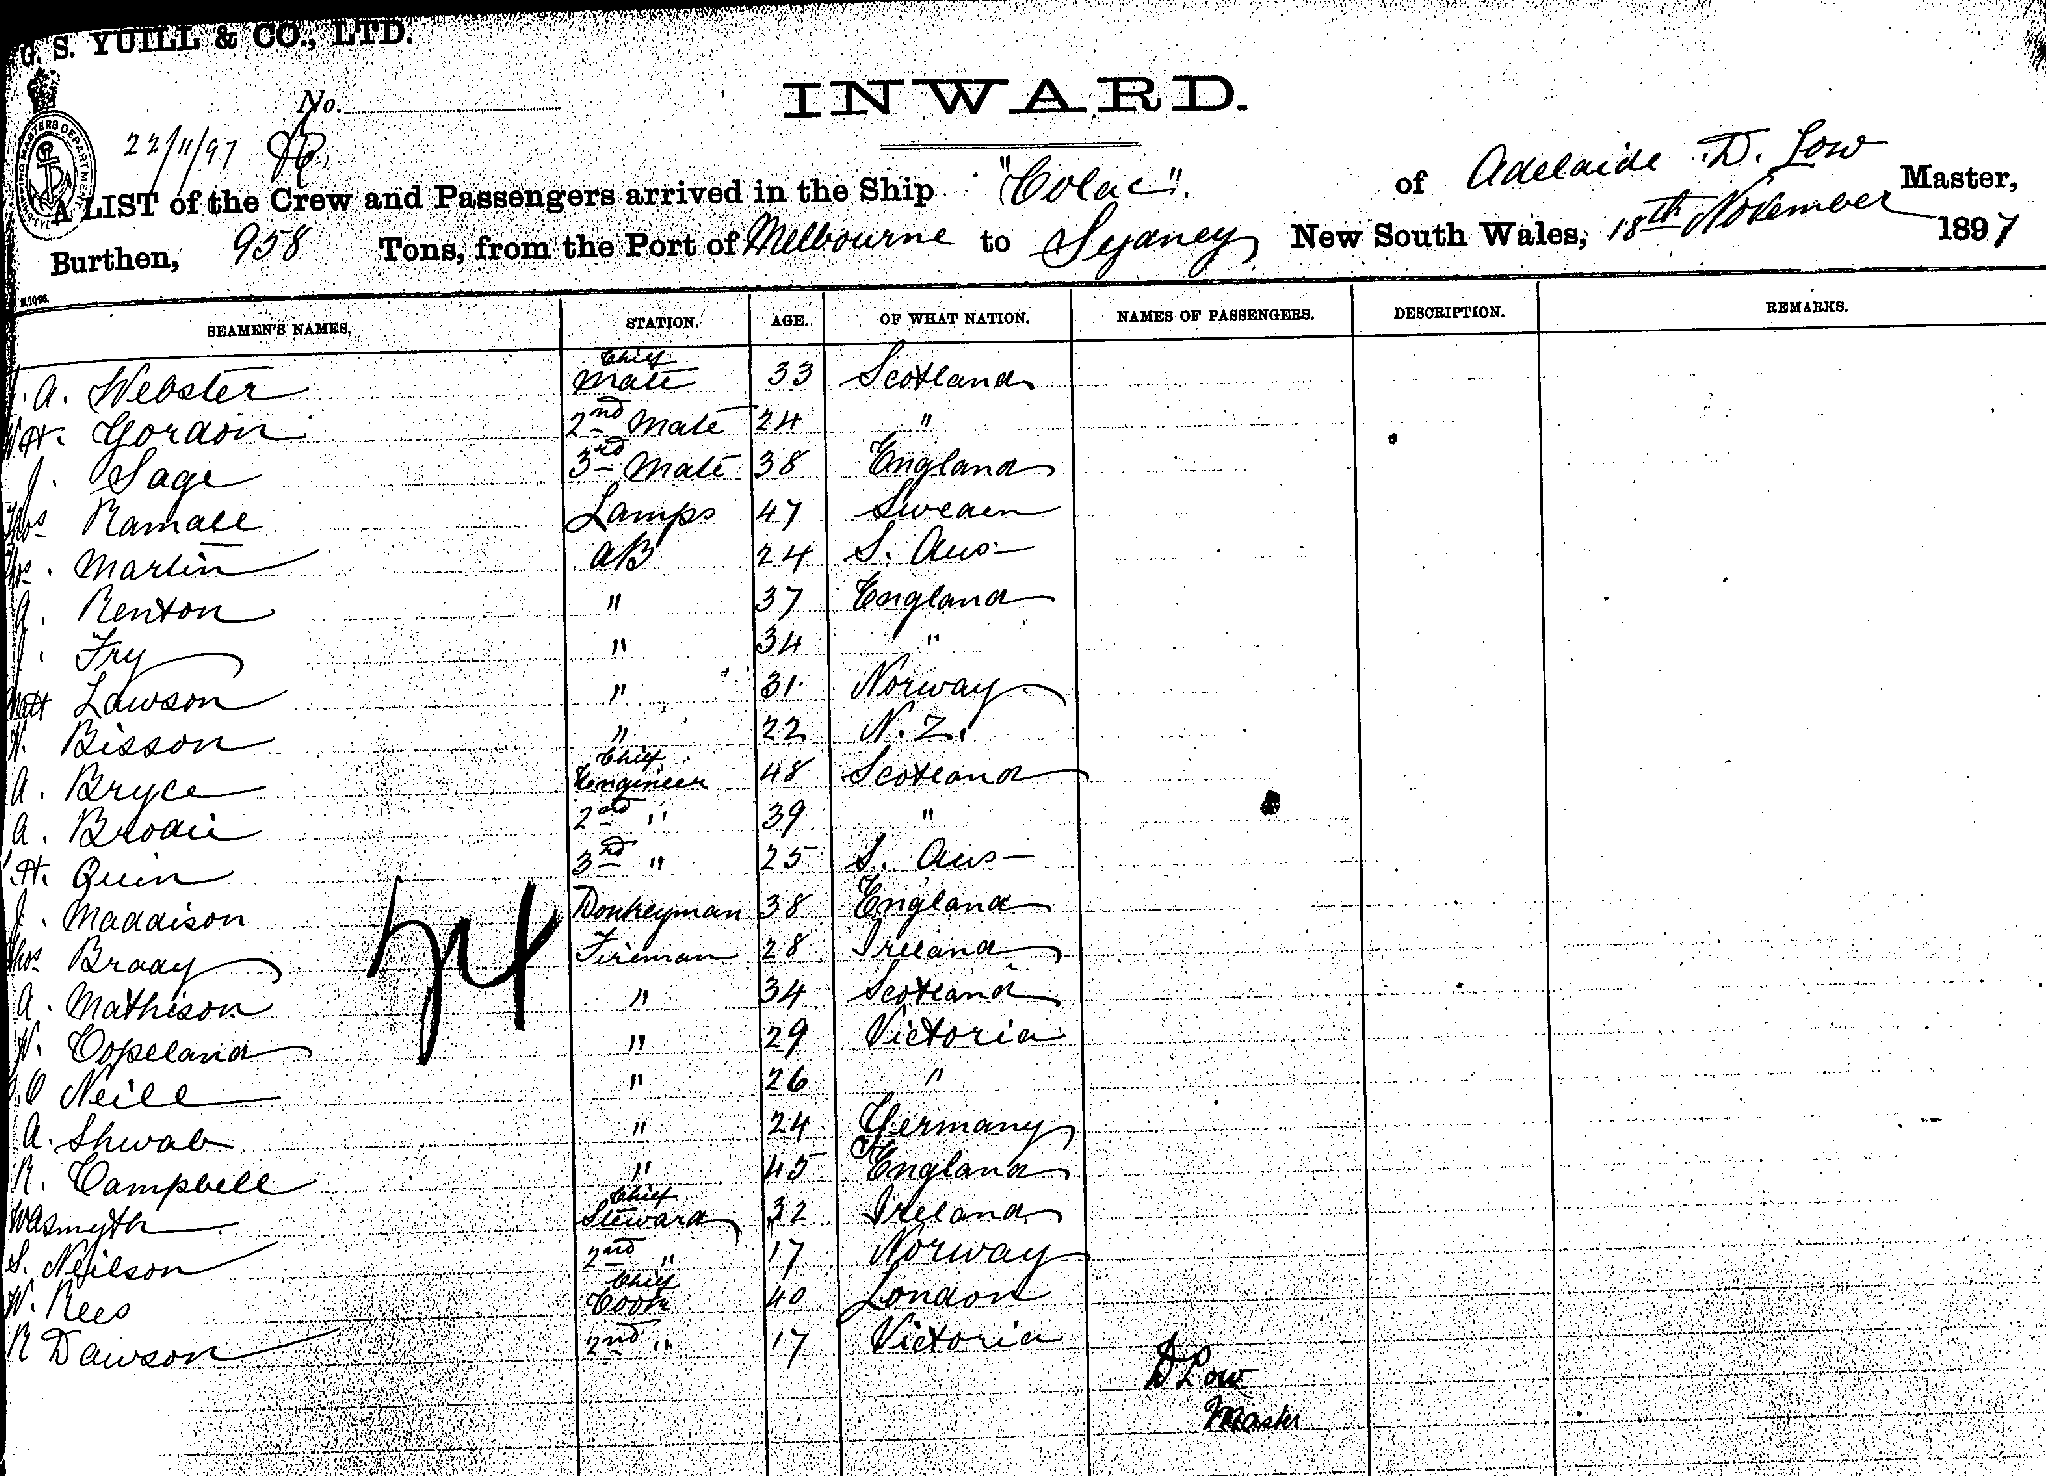 G. S. YUILL & CO., LTD.
No.
INWARD.
22/11/97
A LIST of the Crew and Passengers arrived in the Ship "Colac". of Adelaide D. Low Master,
Burthen, 958 Tons, from the Port of Melbourne to Sydney New South Wales, 18th November 1897
SEAMEN'S NAMES, STATION. AGE. OF WHAT NATION. NAMES OF PASSENGERS. DESCRIPTION. REMARKS.
A. Webster Chief Mate 33 Scotland
Gordon 2nd Mate 24 "
J. Sage 3rd Mate 38 England
Thos Ramall Lamps 47 Sweden
Martin AB 24 S. Aus
A. Renton " 37 England
J. Fry " 34 "
Matt Lawson " 31 Norway
H. Bisson " 22 N.Z.
A. Bryce Chief Engineer 48 Scotland
A. Brodie 2nd " 39 "
H. Quin 3rd " 25 S. Aus
J. Maddison Donkeyman 38 England
Thos Brady Fireman 28 Ireland
A. Mathison " 34 Scotland
W. Copeland " 29 Victoria
O Neill " 26 "
A. Shwab " 24 Germany
R. Campbell " 45 England
W A Smyth Chief Steward 32 Ireland
S. Neilson 2nd " 17 Norway
W. Rees Chief Cook 40 London
R Dawson 2nd " 17 Victoria
D Low
Master